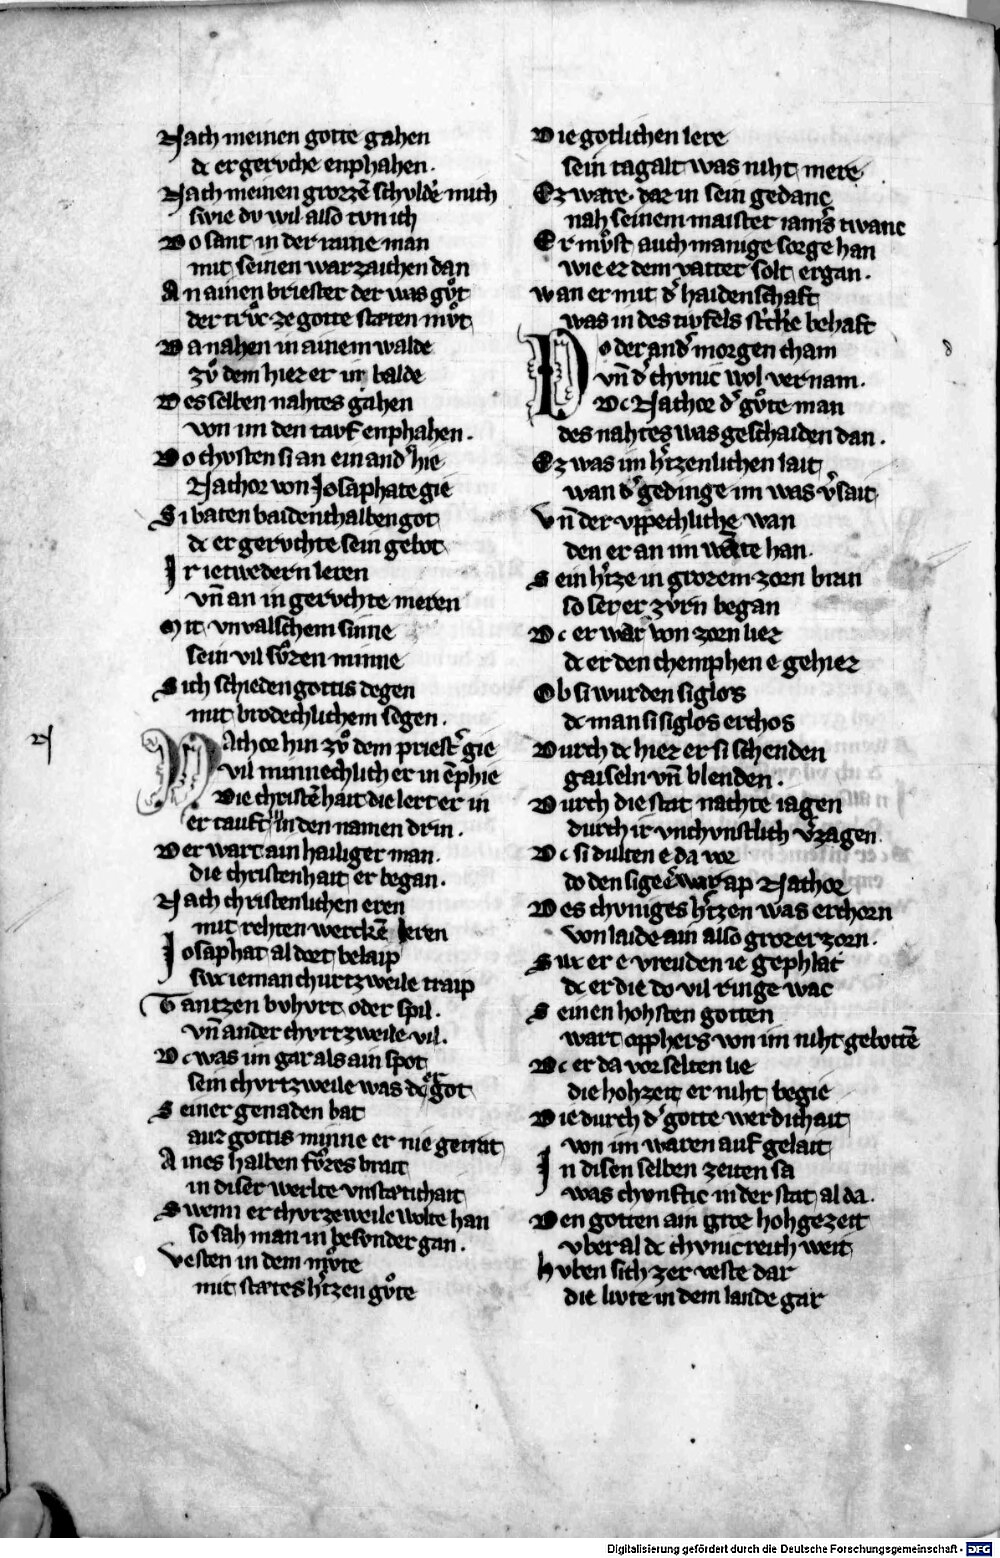 Nach meinen gotte gahen
dc er gervche enphahen.
Nach meinen grozzē schvldē mich
swie dv wil also tvn ich
Do sant in der raine man
mit seinen warzaichen dan
An ainen briester der was gvͦt
der trvͦc ze gotte stæten mvͦt
Da nahen in ainem walde
zvͦ dem hiez er in balde
Des selben nahtes gahen
von im den tavf enphahen.
Do chvsten si an ein and͛ hie
Nachor von Josaphate gie
Si baten baidenthalben got
dc er gervchte sein gebot
Ir ietwedern leren
vn̄ an in gervchte meren
Mit vnvalschem sinne
sein vil svͦzen minne
Sich schieden gottis degen
mit brodechlichem segen.
Nachor hin zvͦ dem priest͛ gie
vil minnechlich er in ēphie
Die christēhait die lert er in
er tauft in den namen drin.
Der wart ain hailiger man.
die christenhait er began.
Nach christenlichen eren
mit rehten werckē leren
Josaphat al dort belaip
swc ieman churtzweile traip
Tantzen bvhvrt oder spil.
vn̄ ander chvrtzweile vil.
Dc was im gar als ain spot
sein chvrtzweile was der got
Seiner genaden bat
auz gottis minne er nie getrat
Aines halben fvͦzes brait
in diser werlte vnstætichait
Swenn er chvrzeweile wolte han
so sah man in besvnder gan.
Vesten in dem mvͦte
mit stætes h͛tzen gvͦte
Die gotlichen lere
sein tagalt was niht mere
Ez ware dar in sein gedanc
nah seinem maister iam͛s twanc
Er mvͦst auch manige sorge han
wie ez dem vatter solt ergan.
wan er mit d͛ haidenschaft
was in des tivfels st͛cke behaft
Do der and͛ morgen cham
vn̄ d͛ chvnic wol vernam.
Dc Nachor d͛ gvͦte man
des nahtes was geschaiden dan.
Ez was im h͛tzenlichen lait
wan d͛ gedinge im was v͛sait
Vn̄ der vppechliche wan
den er an im wolte han.
Sein h͛tze in grozem zorn bran
so ser er zvͤrn began
Dc er war von zorn liez
dc er den chemphen e gehiez
Ob si wurden siglos
dc man si siglos erchos
Durch dc hiez er si schenden
gaiseln vn̄ blenden.
Durch die stat nachte iagen
durch ir vnchvnstlich v͛zagen.
Dc si dulten e da vor
do den sige erwarp Nachor
Des chvniges h͛tzen was erchorn
von laide ain also grozer zorn.
Swc er e vreuden ie gephlac
dc er die do vil ringe wac
Seinen hohsten gotten
wart opphers von im niht gebottē
Dc er da vor selten lie
die hohzeit er niht begie
Die durch d͛ gotte werdichait
von im waren auf gelait
In disen selben zeiten sa
was chvnftic in der stat al da.
Den gotten ain groz hohgezeit
vber al dc chvnicreich weit
Hvben sich zer veste dar
die livte in dem lande gar
Digitalisierung gefördert durch die Deutsche Forschungsgemeinschaft - DFG